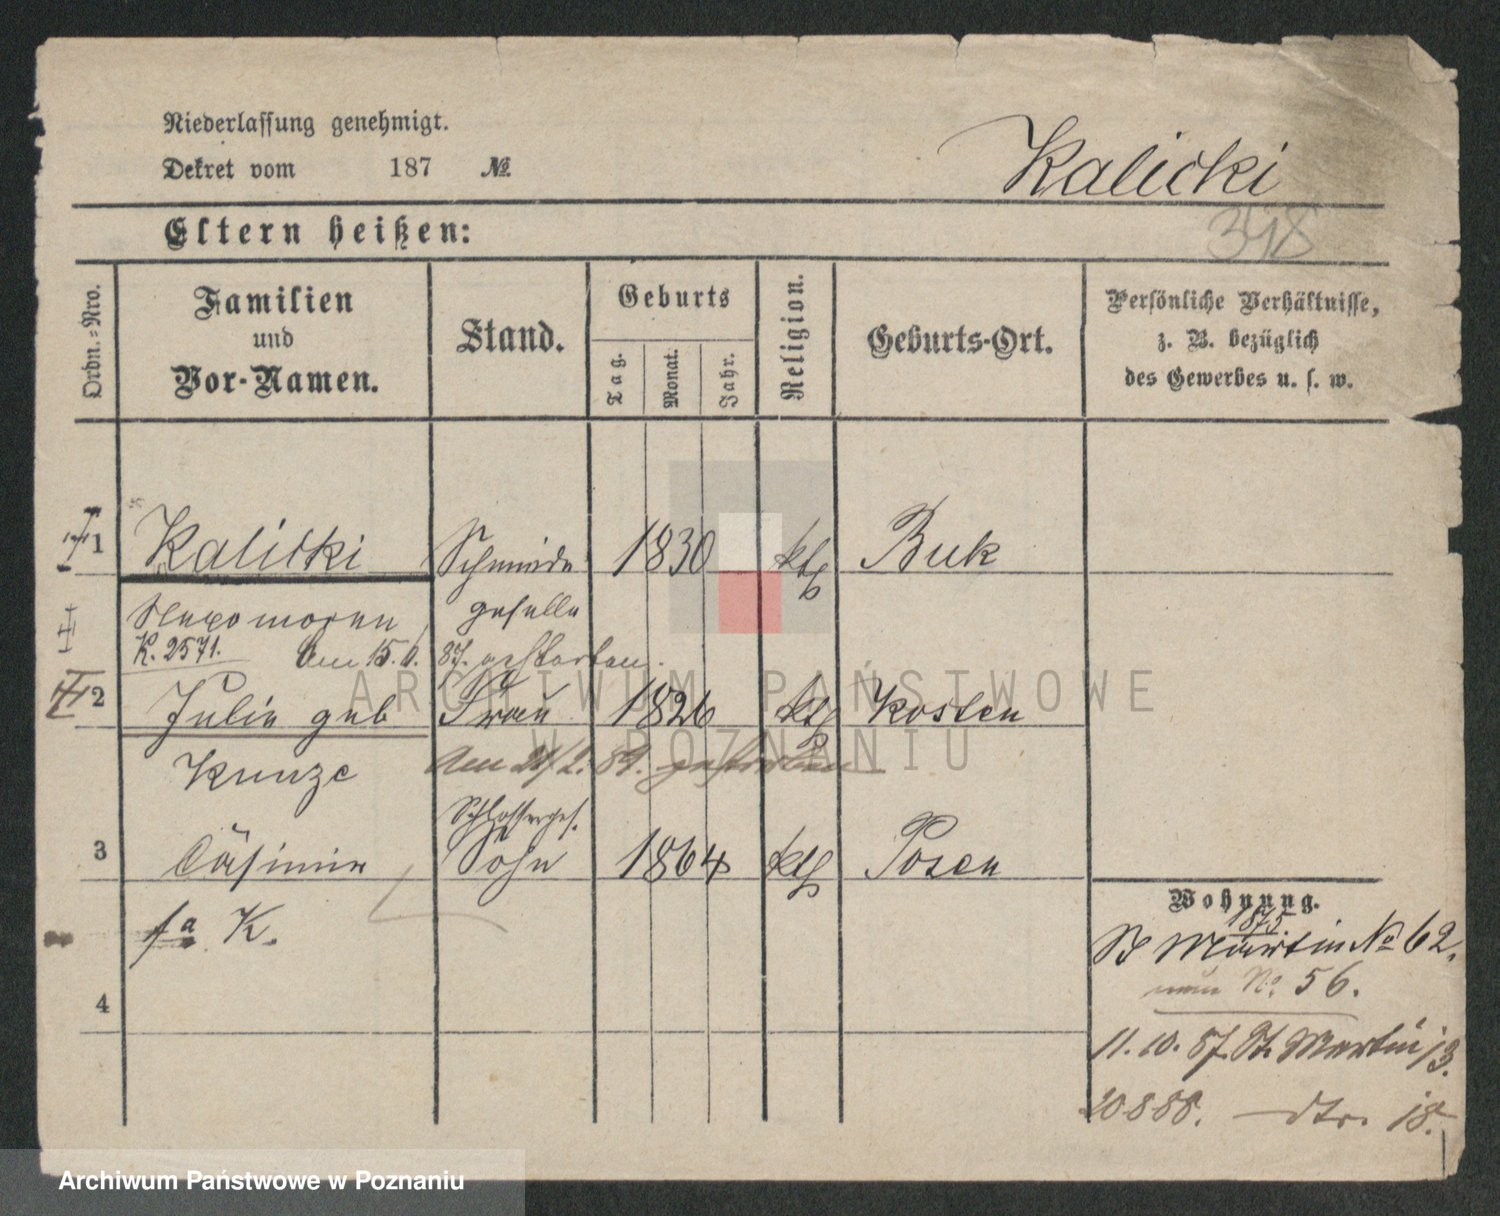 Niederlassung genehmigt.
Dekret vom 187 №
Kalicki
348
Eltern heißen:
Ordn.-Nro.
Familien und Vor-Namen.
Stand.
Geburts
Tag.
Monat.
Jahr.
Religion.
Geburts-Ort.
Persönliche Verhältnisse,
z. B. bezüglich
des Gewerbes u. s. w.
1 Kalicki Schmiede 1830 kth Buk
Nepomocen geselle
K. 2571. Am 15. 6. 87. gestorben.
2 Julie geb Frau 1826 kth Kosten
Kunze Am 21/2. 89. gestorben
Schlosserges.
3 Casimir Sohn 1864 kth Posen
K.
4
Wohnung.
1875
St Martin No 62.
neu No. 56.
11. 10. 87. St. Martin 13.
20 8 88. dto. 18.
ARCHIWUM PAŃSTWOWE
W POZNANIU
Archiwum Państwowe w Poznaniu